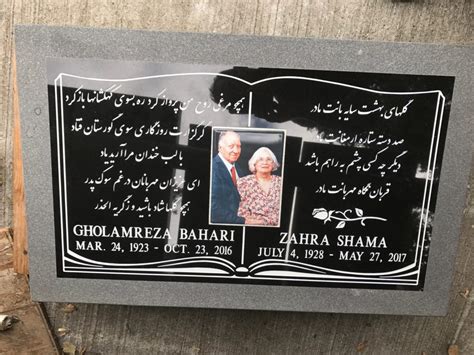 گلهای بهشت سایه بانت مادر
صد دسته ستاره ارمغانت مادر
دیگر چه کسی چشم به راهم باشد
قربان نگاه مهربانت مادر
ZAHRA SHAMA
JULY 4, 1928 - MAY 27, 2017
همچو مرغی روح من پرواز کرد ره بسوی کهکشانها باز کرد
گر گزارت روزگاری سوی گورستان فتاد
با لب خندان مرا آرید یاد
ای عزیزان مهربانان در غم سوک پدر
همچو گلها شاد باشید و ز گریه الحذر
GHOLAMREZA BAHARI
MAR. 24, 1923 - OCT. 23, 2016